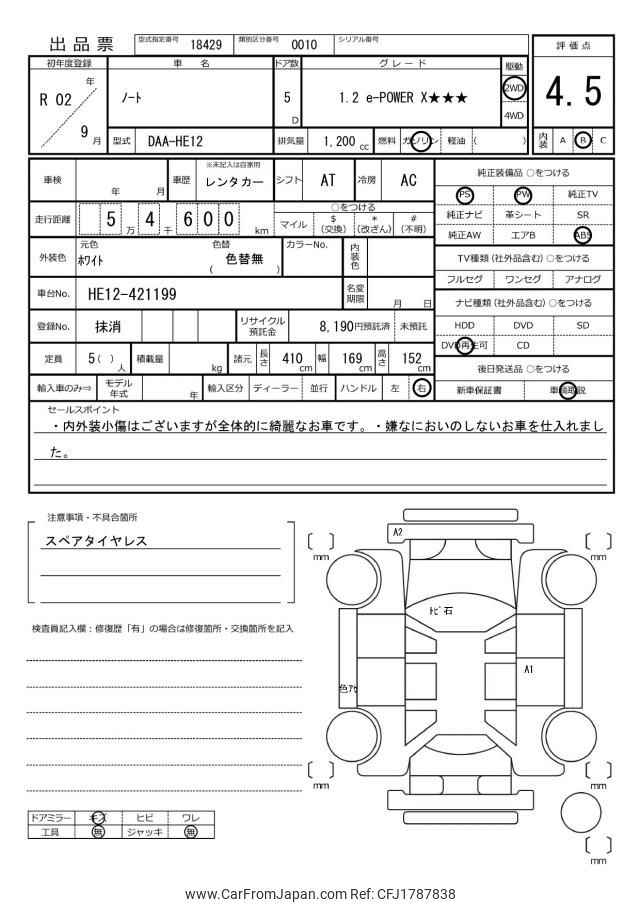 出品票 型式指定番号 18429 類別区分番号 0010 シリアル番号
評価点
4.5
内装 A B C
初年度登録 車名 ドア数 グレード 駆動
R 02 年 9 月
ノート 5 D 1.2 e-POWER X★★★ 2WD 4WD
型式 DAA-HE12 排気量 1,200 cc 燃料 ガソリン 軽油 ( )
車検 年 月 車歴 ※未記入は自家用 レンタカー シフト AT 冷房 AC
走行距離 5 万 4 千 6 0 0 km
○をつける
マイル $ (交換) * (改ざん) # (不明)
外装色 元色 ホワイト 色替 ( 色替無 ) カラーNo. 内装色
車台No. HE12-421199 名変期限 月 日
登録No. 抹消 リサイクル預託金 8,190円預託済 未預託
定員 5( ) 人 積載量 kg 諸元 長さ 410 cm 幅 169 cm 高さ 152 cm
輸入車のみ⇒ モデル年式 年 輸入区分 ディーラー 並行 ハンドル 左 右
純正装備品 ○をつける
PS PW 純正TV
純正ナビ 革シート SR
純正AW エアB ABS
TV種類(社外品含む) ○をつける
フルセグ ワンセグ アナログ
ナビ種類(社外品含む) ○をつける
HDD DVD SD
DVD再生可 CD
後日発送品 ○をつける
新車保証書 車輌取説
セールスポイント
・内外装小傷はございますが全体的に綺麗なお車です。・嫌なにおいのしないお車を仕入れまし
た。
注意事項・不具合箇所
スペアタイヤレス
検査員記入欄：修復歴「有」の場合は修復箇所・交換箇所を記入
ドアミラー キズ ヒビ ワレ
工具 無 ジャッキ 無
A2
トビ石
A1
色アセ
mm
mm
mm
mm
mm
www.CarFromJapan.com Ref: CFJ1787838